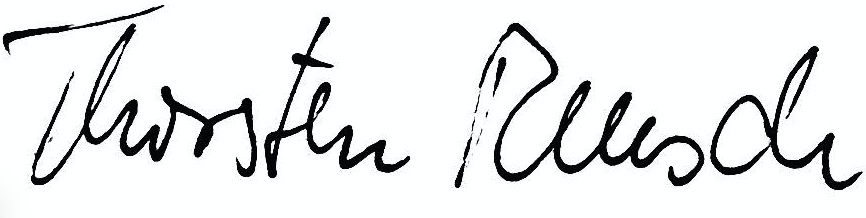 Thorsten Reusch